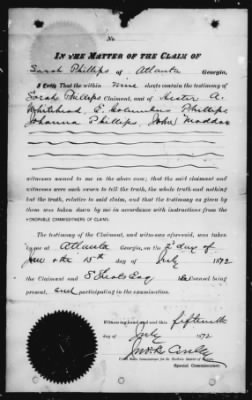 IN THE MATTER OF THE CLAIM OF
Sarah Phillips of Atlanta Georgia,
I Certify That the within nine sheets contain the testimony of
Sarah Phillips Claimant, and of Hester A.
Whitehead, Columbus Phillips
Johanna Phillips, John Maddox
witnesses named to me on the above case; that the said claimant and
witnesses were each sworn to tell the truth, the whole truth and nothing
but the truth, relative to said claim, and that the testimony as given by
them was taken down by me in accordance with instructions from the
HONORABLE COMMISSIONERS OF CLAIMS.
The testimony of the Claimant, and witnesses aforesaid, was taken
by me at Atlanta Georgia, on the 2d day of
June & the 15th day of July 1872
the Claimant and Esq Counsel being
present, and participating in the examination.
Witness my hand and seal this fifteenth
day of July 1872
Special Commissioner.